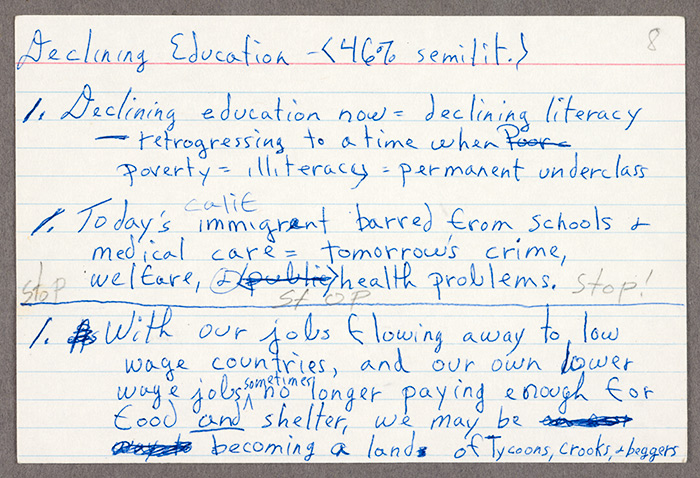 8
Declining Education - <46% semilit.>
1. Declining education now = declining literacy
— retrogressing to a time when Poor =
poverty = illiteracy = permanent underclass
calif
1. Today's immigrant barred from schools &
medical care = tomorrow's crime,
welfare, & <public> health problems. Stop!
Stop
St op
1. With our jobs flowing away to low
wage countries, and our own lower
wage jobs sometimes no longer paying enough for
food and shelter, we may be
becoming a land of Tycoons, crooks, & beggers